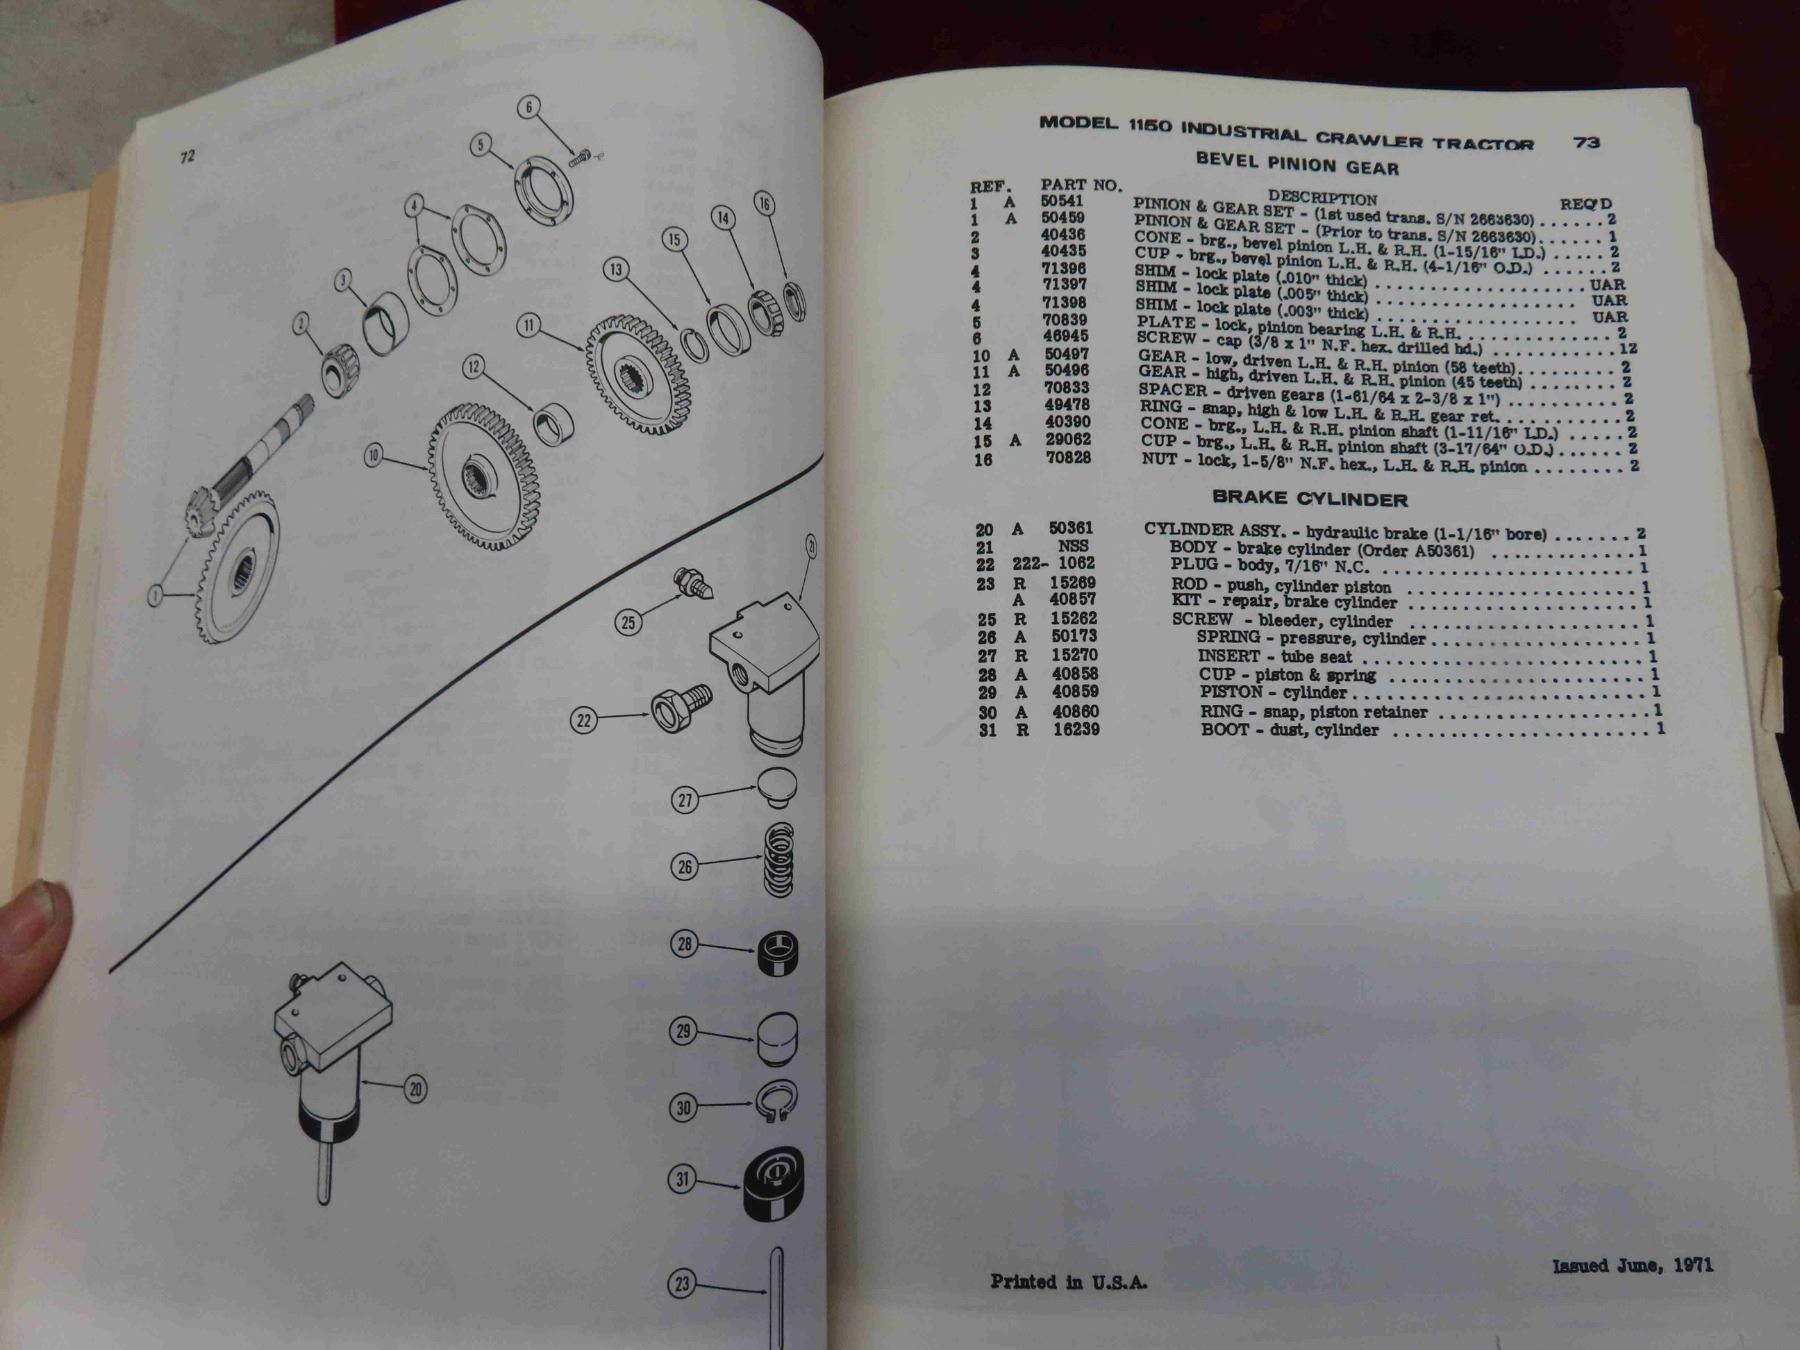 72
6
5
4
16
14
15
3
13
2
11
12
10
1
21
25
22
27
26
28
29
20
30
31
23
MODEL 1150 INDUSTRIAL CRAWLER TRACTOR 73
BEVEL PINION GEAR
REF. PART NO. DESCRIPTION REQ'D
1 A 50541 PINION & GEAR SET - (1st used trans. S/N 2663630) ...... 2
1 A 50459 PINION & GEAR SET - (Prior to trans. S/N 2663630) ...... 1
2 40436 CONE - brg., bevel pinion L.H. & R.H. (1-15/16" I.D.) ..... 2
3 40435 CUP - brg., bevel pinion L.H. & R.H. (4-1/16" O.D.) ...... 2
4 71396 SHIM - lock plate (.010" thick) .................. UAR
4 71397 SHIM - lock plate (.005" thick) .................. UAR
4 71398 SHIM - lock plate (.003" thick) .................. UAR
5 70839 PLATE - lock, pinion bearing L.H. & R.H. ............. 2
6 46945 SCREW - cap (3/8 x 1" N.F. hex. drilled hd.) .......... 12
10 A 50497 GEAR - low, driven L.H. & R.H. pinion (58 teeth) ........ 2
11 A 50496 GEAR - high, driven L.H. & R.H. pinion (45 teeth) ........ 2
12 70833 SPACER - driven gears (1-61/64 x 2-3/8 x 1") .......... 2
13 49478 RING - snap, high & low L.H. & R.H. gear ret. .......... 2
14 40390 CONE - brg., L.H. & R.H. pinion shaft (1-11/16" I.D.) ..... 2
15 A 29062 CUP - brg., L.H. & R.H. pinion shaft (3-17/64" O.D.) ...... 2
16 70828 NUT - lock, 1-5/8" N.F. hex., L.H. & R.H. pinion ........ 2
BRAKE CYLINDER
20 A 50361 CYLINDER ASSY. - hydraulic brake (1-1/16" bore) ....... 2
21 NSS BODY - brake cylinder (Order A50361) ............. 1
22 222- 1062 PLUG - body, 7/16" N.C. ...................... 1
23 R 15269 ROD - push, cylinder piston ..................... 1
A 40857 KIT - repair, brake cylinder .................... 1
25 R 15262 SCREW - bleeder, cylinder ..................... 1
26 A 50173 SPRING - pressure, cylinder ................... 1
27 R 15270 INSERT - tube seat ......................... 1
28 A 40858 CUP - piston & spring ....................... 1
29 A 40859 PISTON - cylinder .......................... 1
30 A 40860 RING - snap, piston retainer ................... 1
31 R 16239 BOOT - dust, cylinder ....................... 1
Printed in U.S.A.
Issued June, 1971